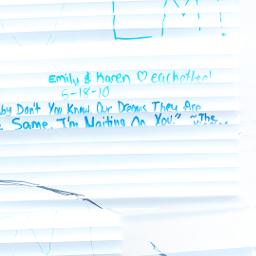 Emily & Karen ♡ eachother!
6-18-10
by Don't You Know Our Dreams They Are
Same. I'm Waiting On You" ~The